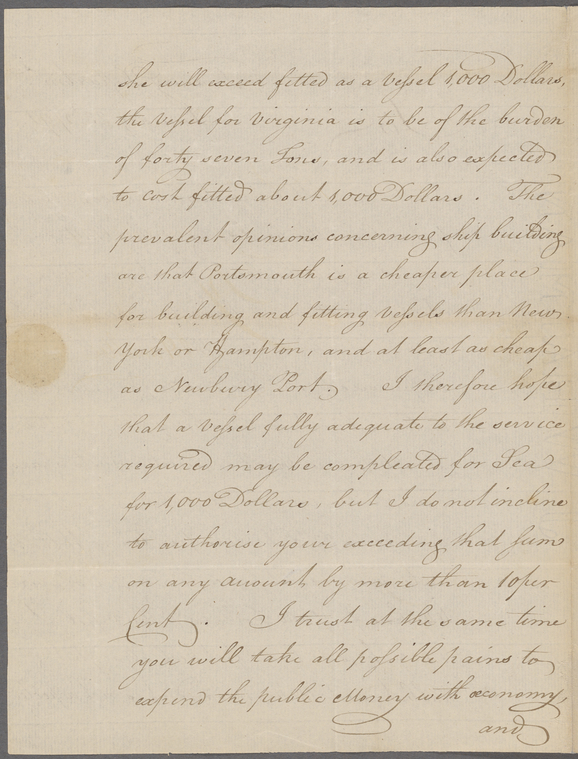 she will exceed fitted as a vessel 1,000 Dollars,
the vessel for virginia is to be of the burden
of forty seven Tons, and is also expected
to cost fitted about 1,000 Dollars. The
prevalent opinions concerning ship building
are that Portsmouth is a cheaper place
for building and fitting vessels than New
York or Hampton, and at least as cheap
as Newbury Port. I therefore hope
that a vessel fully adequate to the service
required may be compleated for Sea
for 1,000 Dollars, but I do not incline
to authorise your exceeding that sum
on any account by more than 10 per
Cent. I trust at the same time
you will take all possible pains to
expend the public Money with œconomy,
and